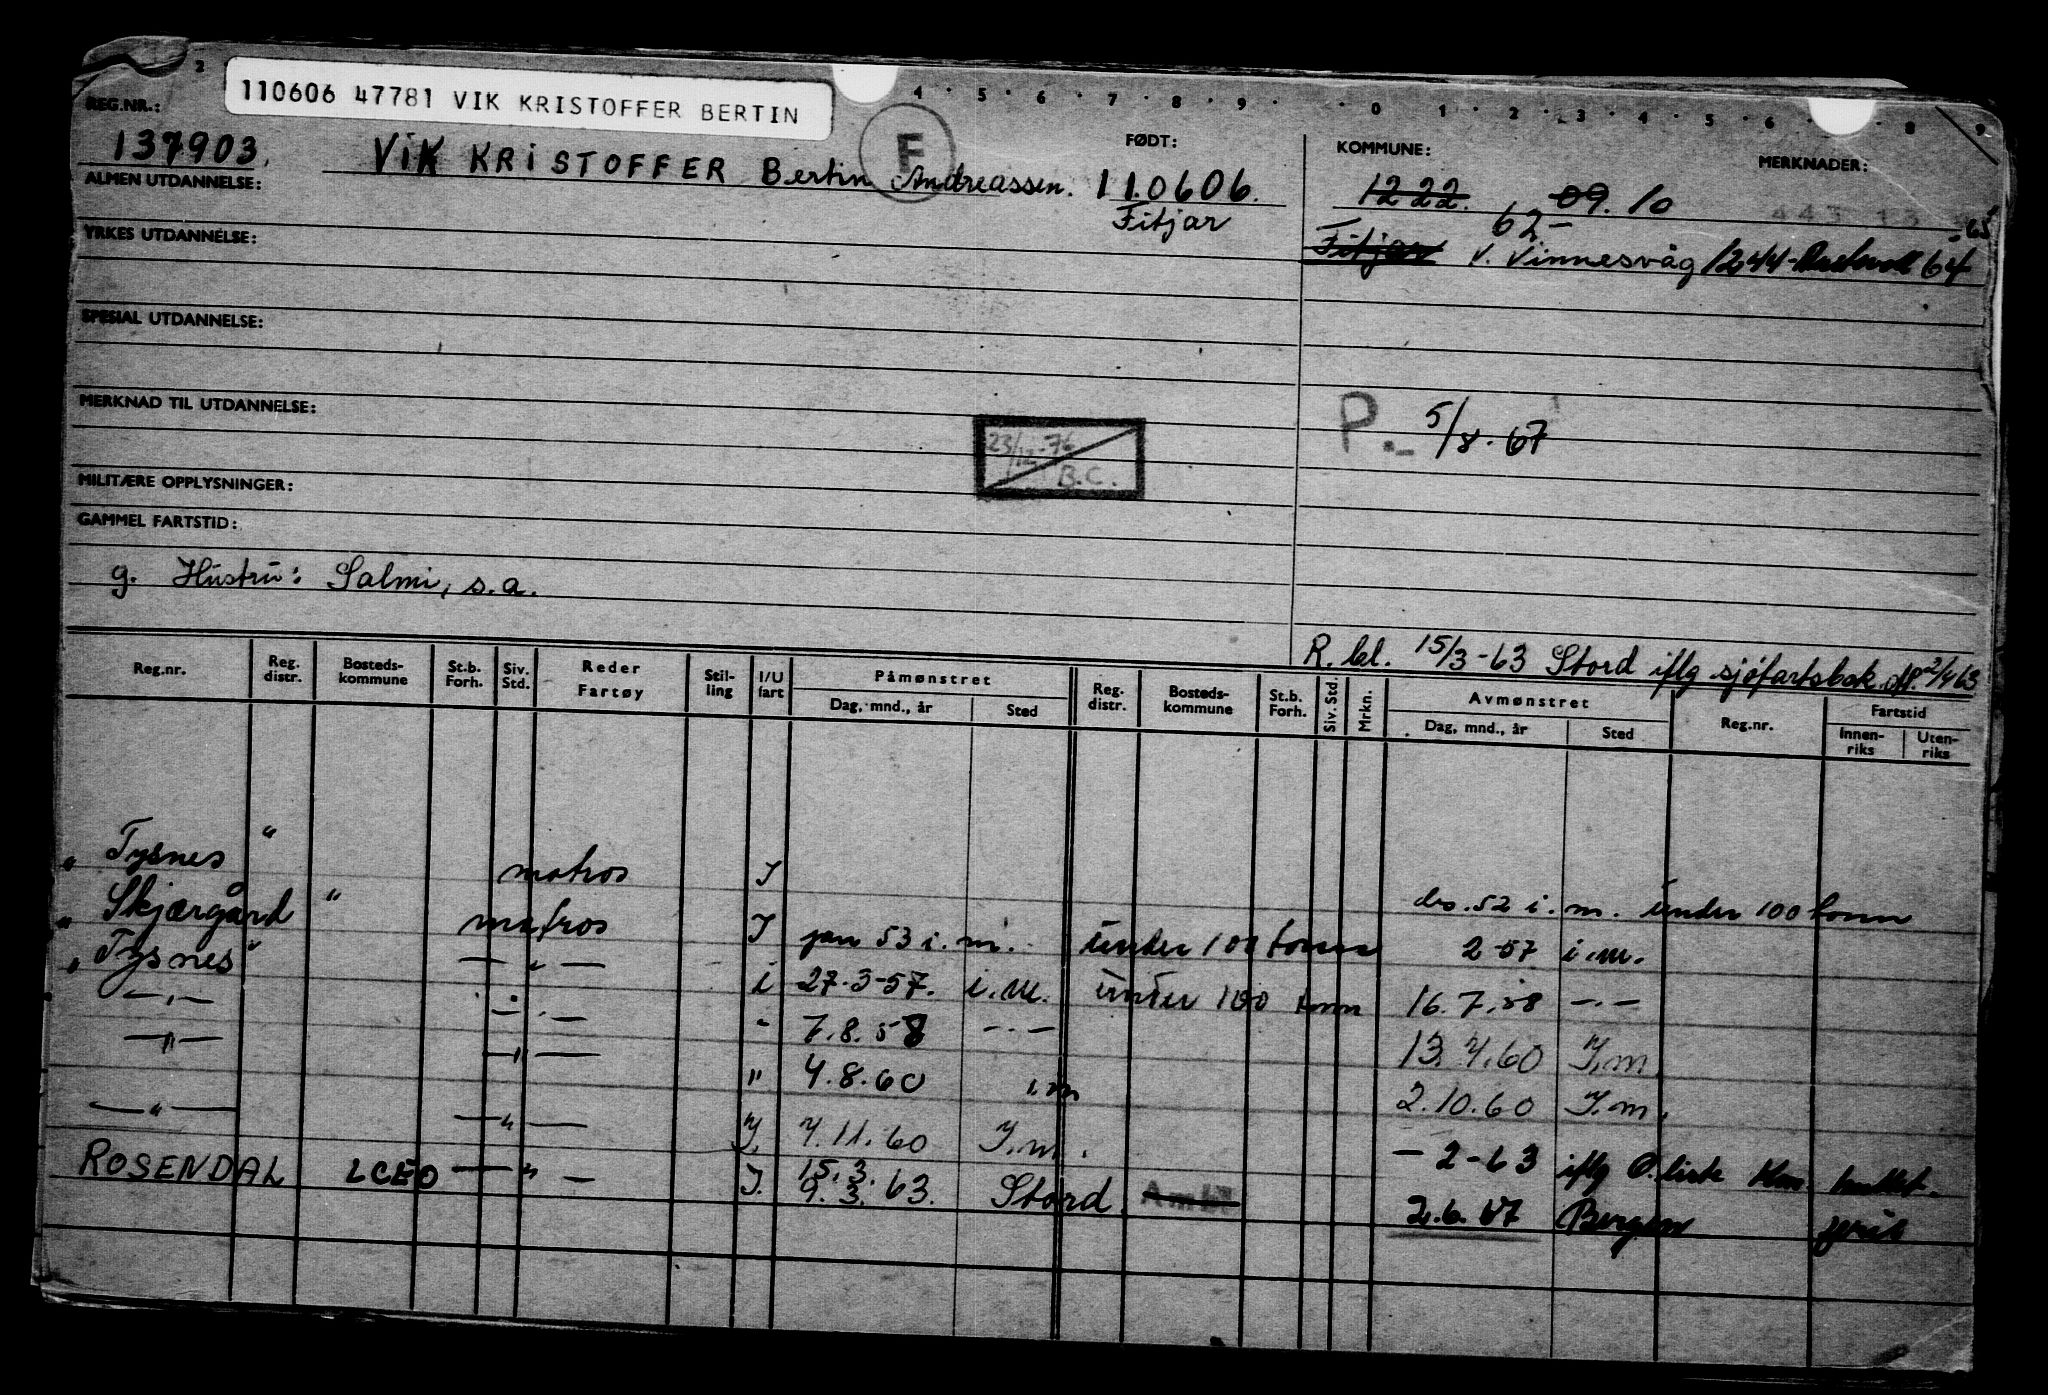 110606 47781 VIK KRISTOFFER BERTIN
2 4 5 6 7 8 9 0 1 2 3 4 5 6 8 9
REG.NR.: FØDT: KOMMUNE: MERKNADER:
137903. VIK KRISTOFFER Bertin Andreassen. 110606. 1222. 09. 10
F
Fitjar 62-
ALMEN UTDANNELSE:
Fitjar V. Vinnesvåg 1244- 64
YRKES UTDANNELSE:
SPESIAL UTDANNELSE:
MERKNAD TIL UTDANNELSE:
P. 5/8.67
23/12-76
B.C.
MILITÆRE OPPLYSNINGER:
GAMMEL FARTSTID:
g. Hustru: Salmi, s.a.
R. bl. 15/3-63 Stord iflg sjøfartsbok 2/4 63
Reg.nr. Reg. distr. Bosteds-kommune St.b. Forh. Siv. Std. Reder Fartøy Stil-ling I/U fart Påmønstret Dag, mnd., år Sted Reg. distr. Bosteds-kommune St.b. Forh. Siv. Std. Mrkn. Avmønstret Dag, mnd., år Sted Reg.nr. Fartstid Innen-riks Uten-riks
" Tysnes " matros I des. 52 i. m. under 100 tonn
" Skjærgård " matros I jan 53 i. m. under 100 tonn 2-57 i.m.
" Tysnes " — " — i 27.3-57. i.m. under 100 tonn 16.7.58 — . —
— " — — " — " 7.8.58 — . — 13.7.60 I.m
— " — — " — " 4.8.60 i.m 2.10.60 I.m.
— " — — " — I. 7.11.60 I.m. -2-63 iflg
ROSENDAL LCEO — " — I. 15.3. 9.3.63. Stord. 2.6.67 Bergen